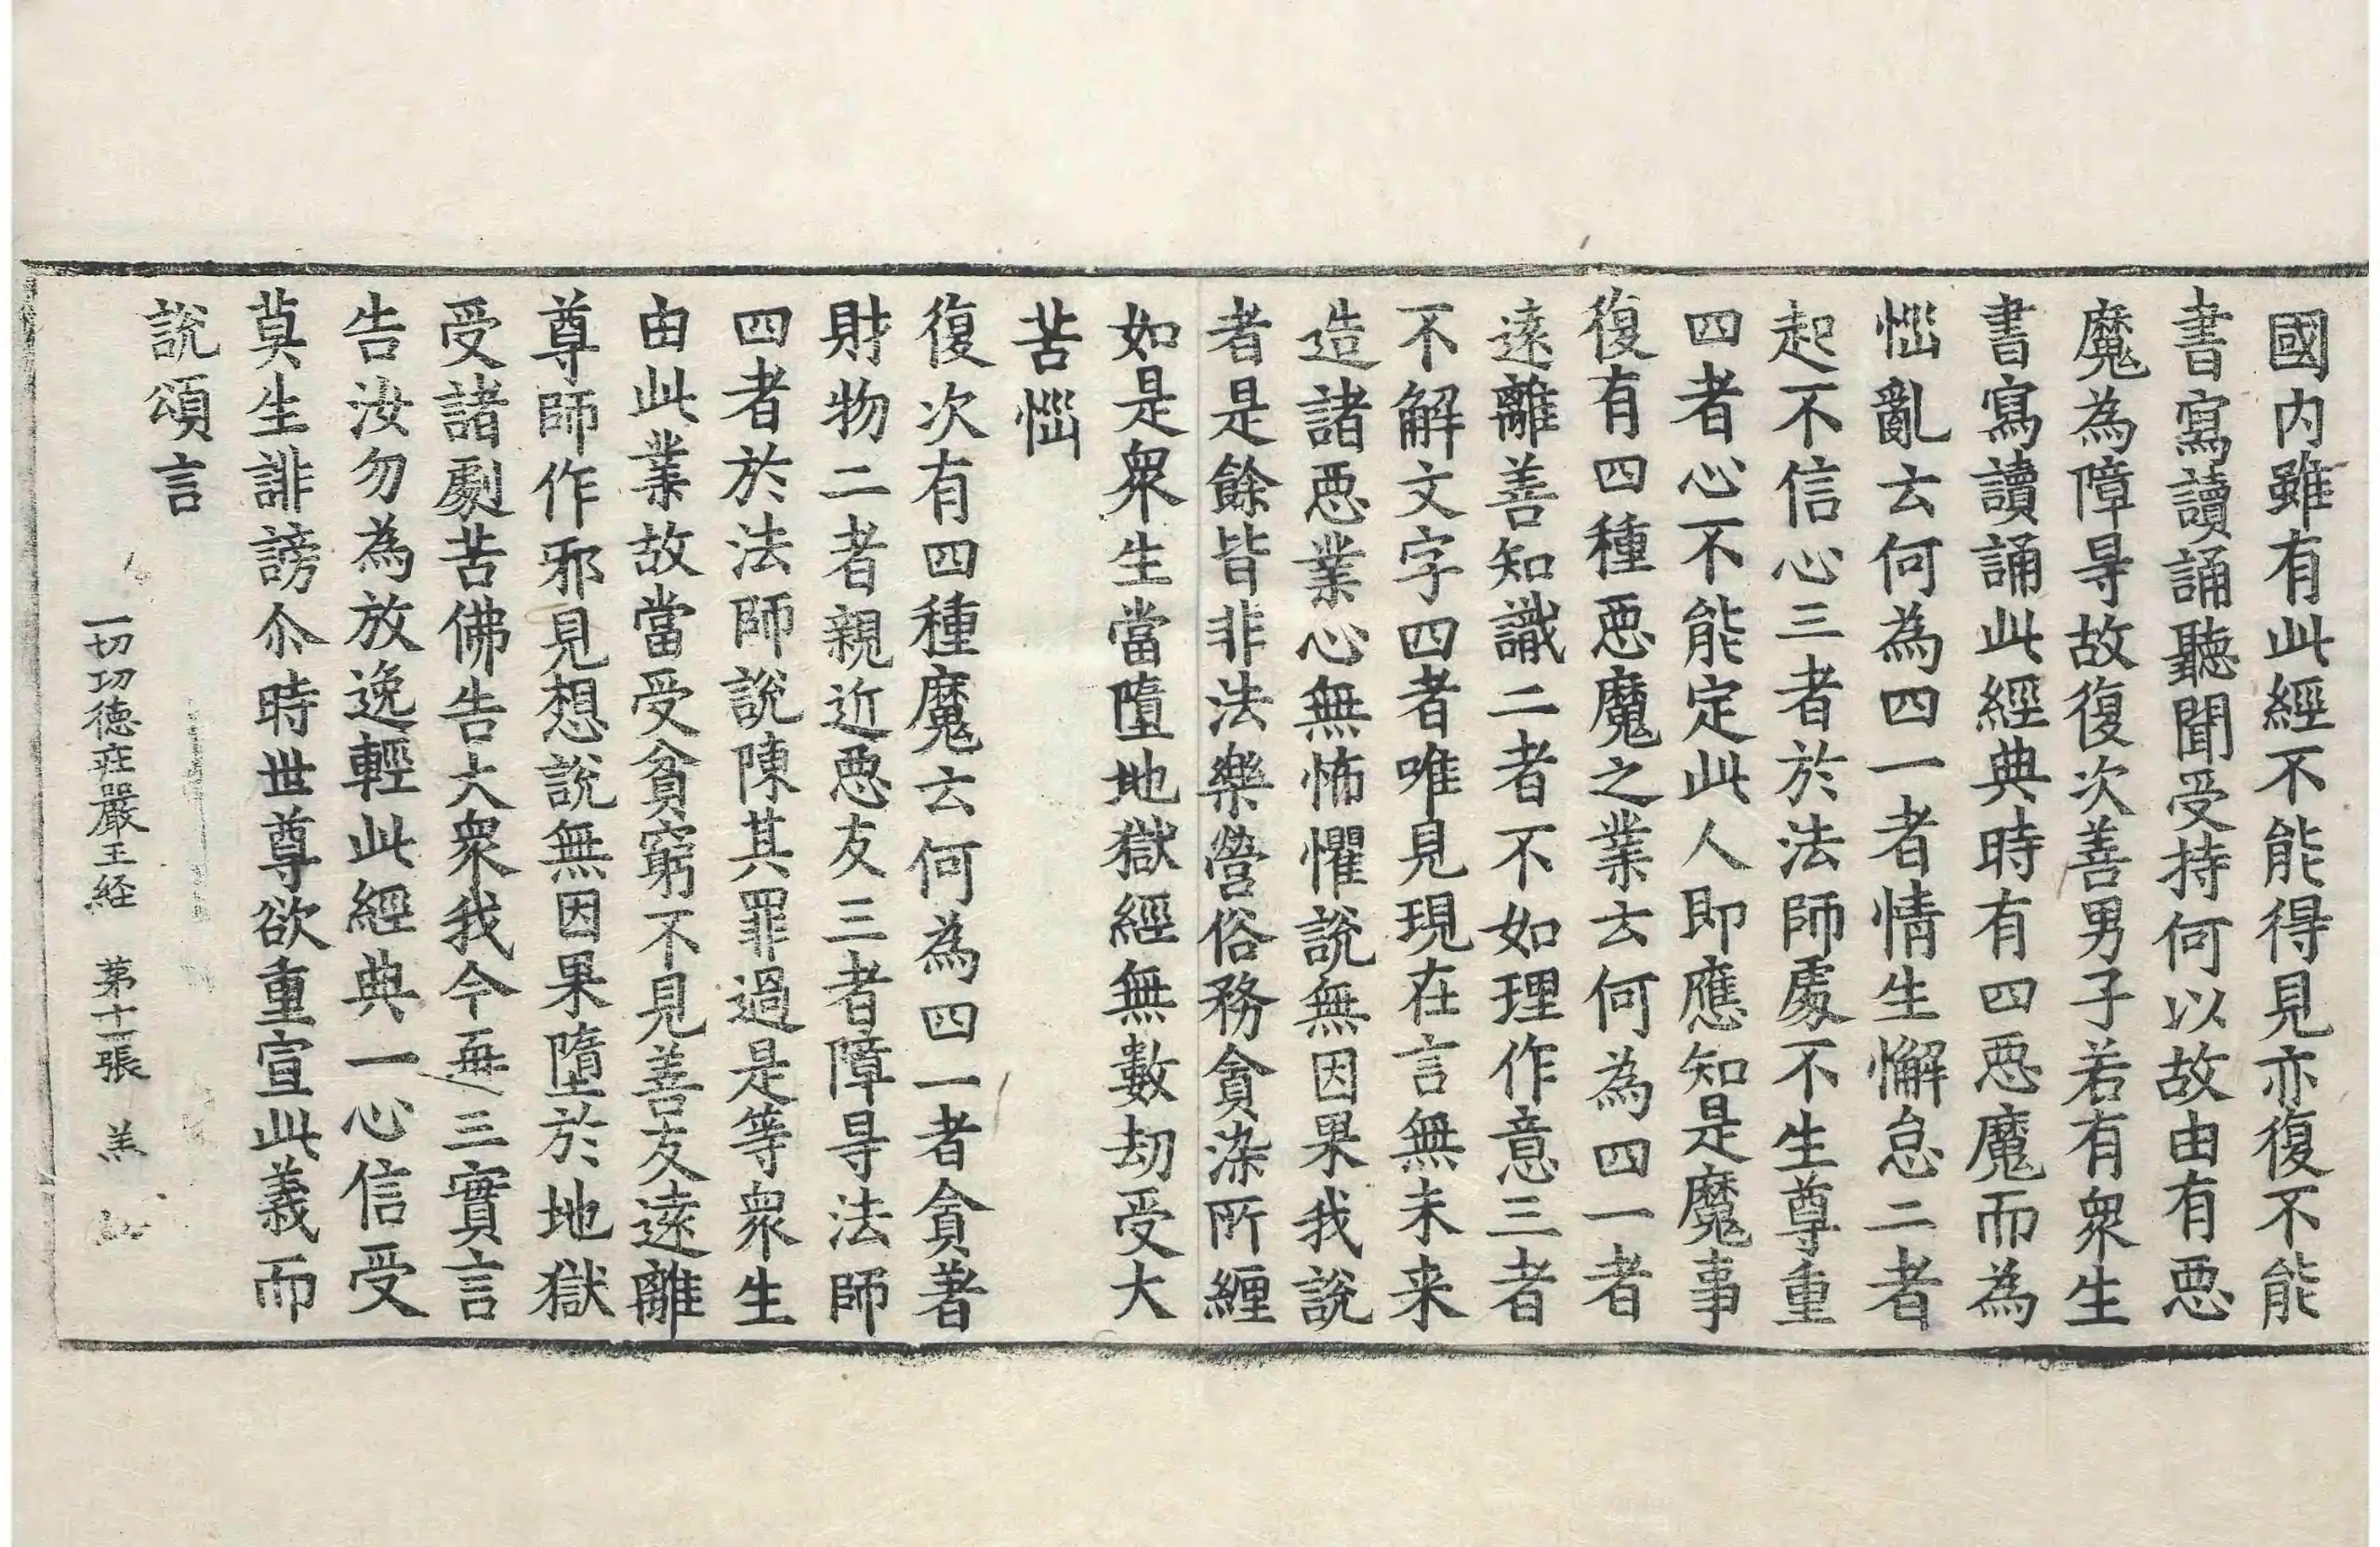 國内雖有此經不能得見亦復不能
書寫讀誦聽聞受持何以故由有惡
魔為障㝵故復次善男子若有眾生
書寫讀誦此經典時有四惡魔而為
惱亂云何為四一者情生懈怠二者
起不信心三者於法師處不生尊重
四者心不能定此人即應知是魔事
復有四種惡魔之業云何為四一者
遠離善知識二者不如理作意三者
不解文字四者唯見現在言無未来
造諸惡業心無怖懼說無因果我說
者是餘皆非法樂營俗務貪染所纏
如是眾生當墮地獄經無數劫受大
苦惱
復次有四種魔云何為四一者貪著
財物二者親近惡友三者障㝵法師
四者於法師說陳其罪過是等眾生
由此業故當受貧窮不見善友遠離
尊師作邪見想說無因果墮於地獄
受諸劇苦佛告大眾我今再三實言
告汝勿為放逸輕此經典一心信受
莫生誹謗尒時世尊欲重宣此義而
說頌言
一切功德庄嚴王経 苐十二張 羔